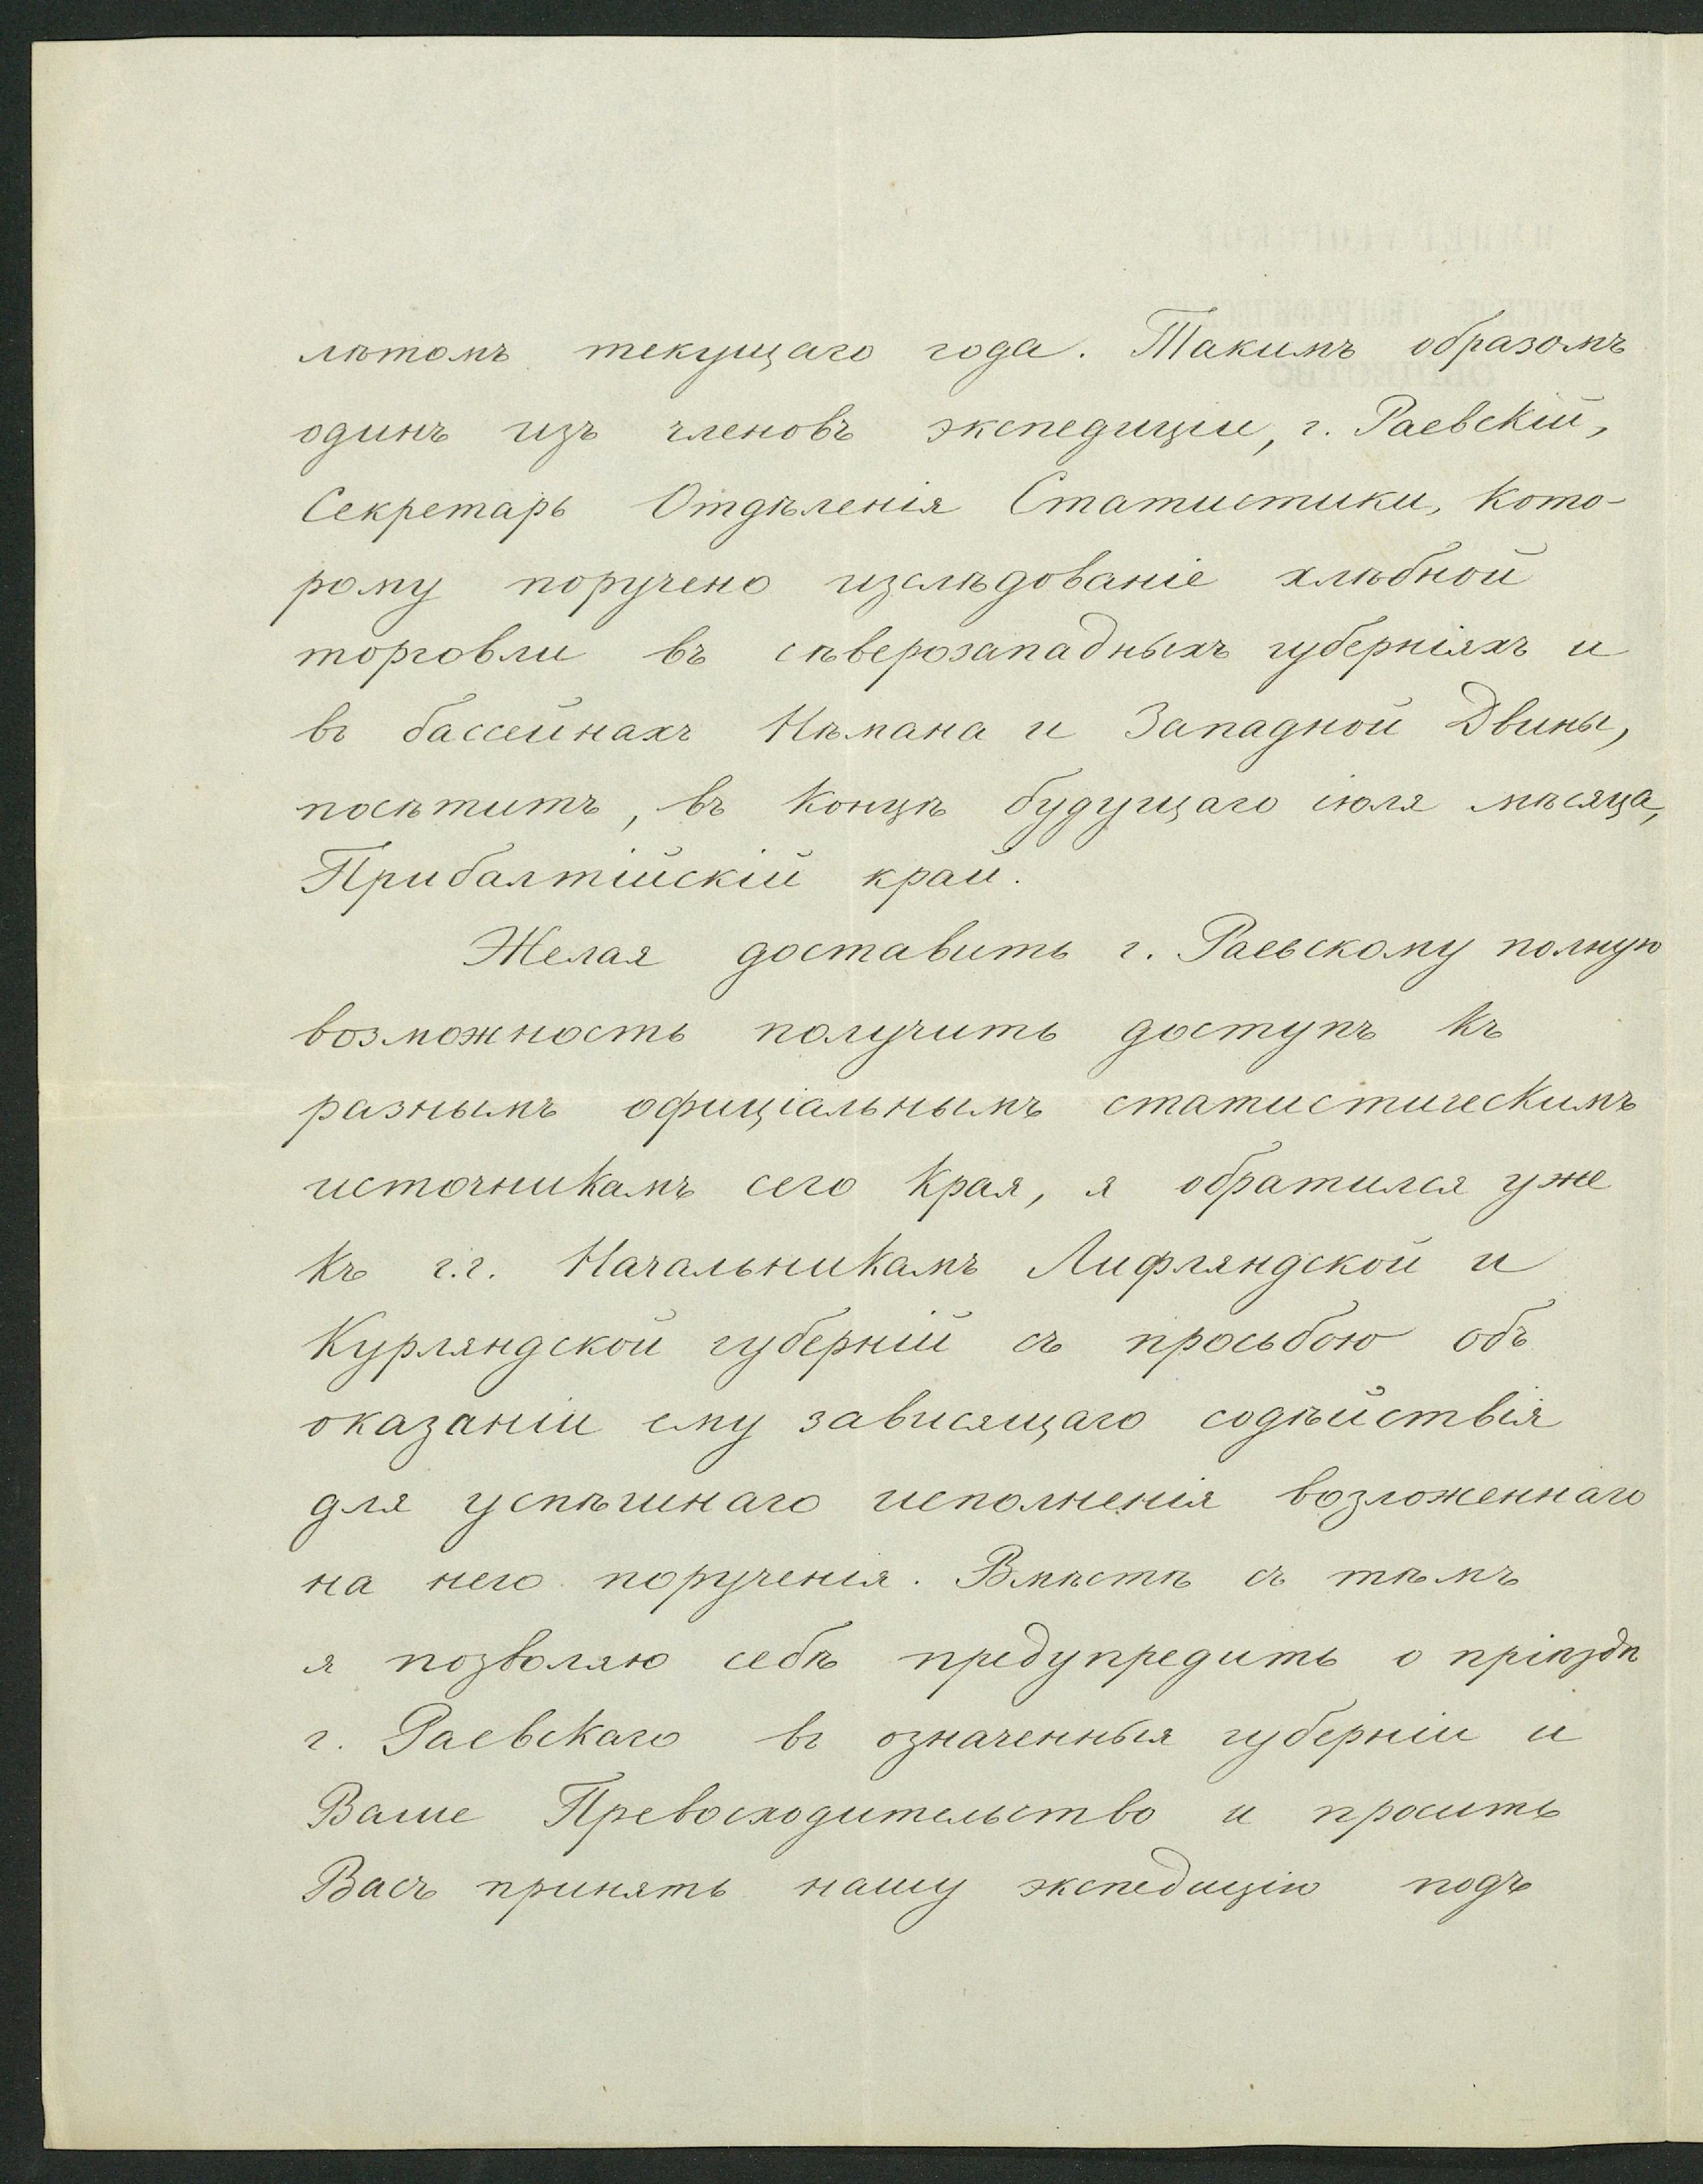 лѣтомъ текущаго года. Такимъ образомъ
одинъ изъ членовъ экспедиціи, г. Раевскій,
Секретарь Отдѣленія Статистики, кото-
рому поручено изслѣдованіе хлѣбной
торговли въ сѣверозападныхъ губерніяхъ и
въ бассейнахъ Нѣмана и Западной Двины,
посѣтитъ, въ концѣ будущаго іюля мѣсяца,
Прибалтійскій край.
Желая доставить г. Раевскому полную
возможность получить доступъ къ
разнымъ офиціальнымъ статистическимъ
источникамъ сего края, я обратился уже
къ г.г. Начальникамъ Лифляндской и
Курляндской губерній съ просьбою объ
оказаніи ему зависящаго содѣйствія
для успѣшнаго исполненія возложеннаго
на него порученія. Вмѣстѣ съ тѣмъ
я позволяю себѣ предупредить о пріѣздѣ
г. Раевскаго въ означенныя губерніи и
Ваше Превосходительство и просить
Васъ принять нашу экспедицію подъ